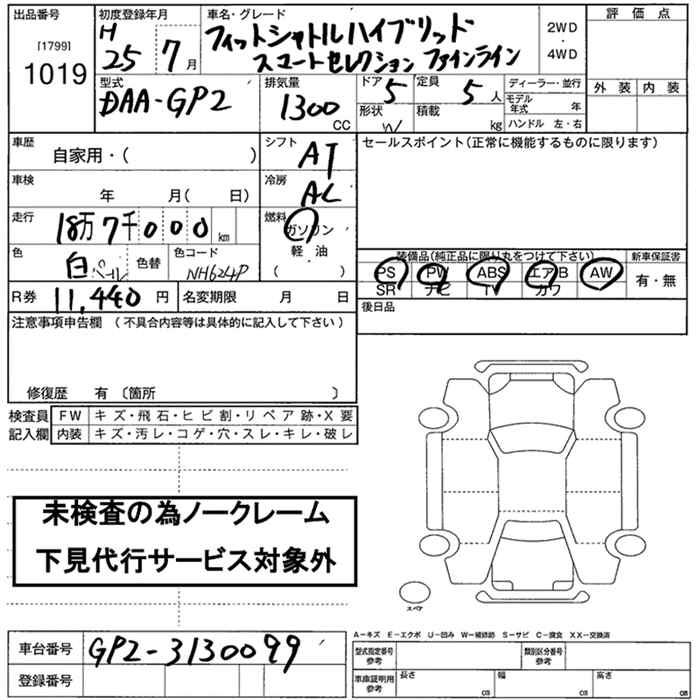 出品番号 初度登録年月 車名・グレード 評価点
[1799] H フィットシャトルハイブリッド 2WD
1019 25 7月 スマートセレクション ファインライン ・ 4WD
型式 排気量 ドア 定員 ディーラー・並行 外装 内装
DAA-GP2 1300 CC 5 5人 モデル年式 年
形状 W 積載 kg ハンドル 左・右
車歴 シフト セールスポイント(正常に機能するものに限ります)
自家用・( ) AT
車検 冷房
年 月( 日) AC
走行 燃料
18万7千000km ガソリン
色 色替 色コード 軽油 装備品(純正品に限り丸をつけて下さい) 新車保証書
白パール NH624P ( ) PS PW ABS エアB AW 有・無
SR ナビ TV カワ
R券 11,440円 名変期限 月 日 後日品
注意事項申告欄 (不具合内容等は具体的に記入して下さい)
修復歴 有 〔箇所 〕
検査員 FW キズ・飛石・ヒビ割・リペア跡・X要
記入欄 内装 キズ・汚レ・コゲ・穴・スレ・キレ・破レ
未検査の為ノークレーム
下見代行サービス対象外
スペア
A-キズ E-エクボ U-凹み W-補修跡 S-サビ C-腐食 XX-交換済
車台番号 GP2-3130099 型式指定番号 参考 類別区分番号 参考
登録番号 車庫証明用 参考 長さ cm 幅 cm 高さ cm